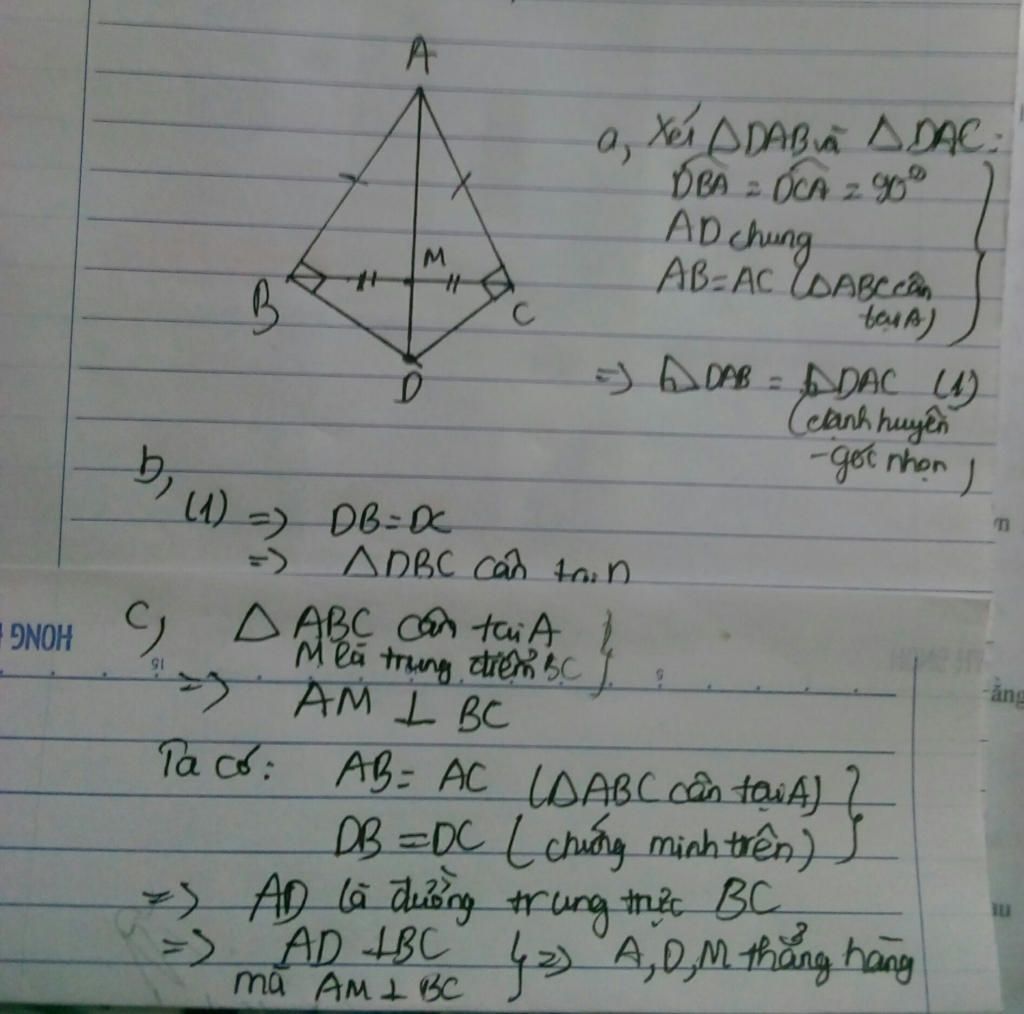 A
M
B
C
D
a, Xét △DAB và △DAC:
DBA = DCA = 90°
AD chung
AB=AC (△ABC cân
tại A)
=> △DAB = △DAC (1)
(cạnh huyền
-góc nhọn)
b,
(1) => DB=DC
=> △DBC cân tại D
HONG
c, △ ABC cân tại A
M là trung điểm BC
=> AM ⊥ BC
ẳng
Ta có: AB= AC (△ABC cân tại A)
DB =DC (chứng minh trên)
=> AD là đường trung trực BC
=> AD ⊥BC
mà AM ⊥ BC
=> A,D,M thẳng hàng